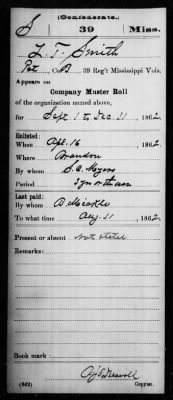 (Confederate.)
S 39 Miss.
L. T. Smith
Pvt, Co. B, 39 Reg't Mississippi Vols.
Appears on
Company Muster Roll
of the organization named above,
for Sept 1 to Dec. 31, 1862.
Enlisted:
When Apl. 16, 1862.
Where Brandon
By whom S. A. Meyers
Period 3 yrs or the war
Last paid:
By whom
To what time Aug. 31, 1862.
Present or absent Not stated
Remarks:
Book mark:
(642) Copyist.